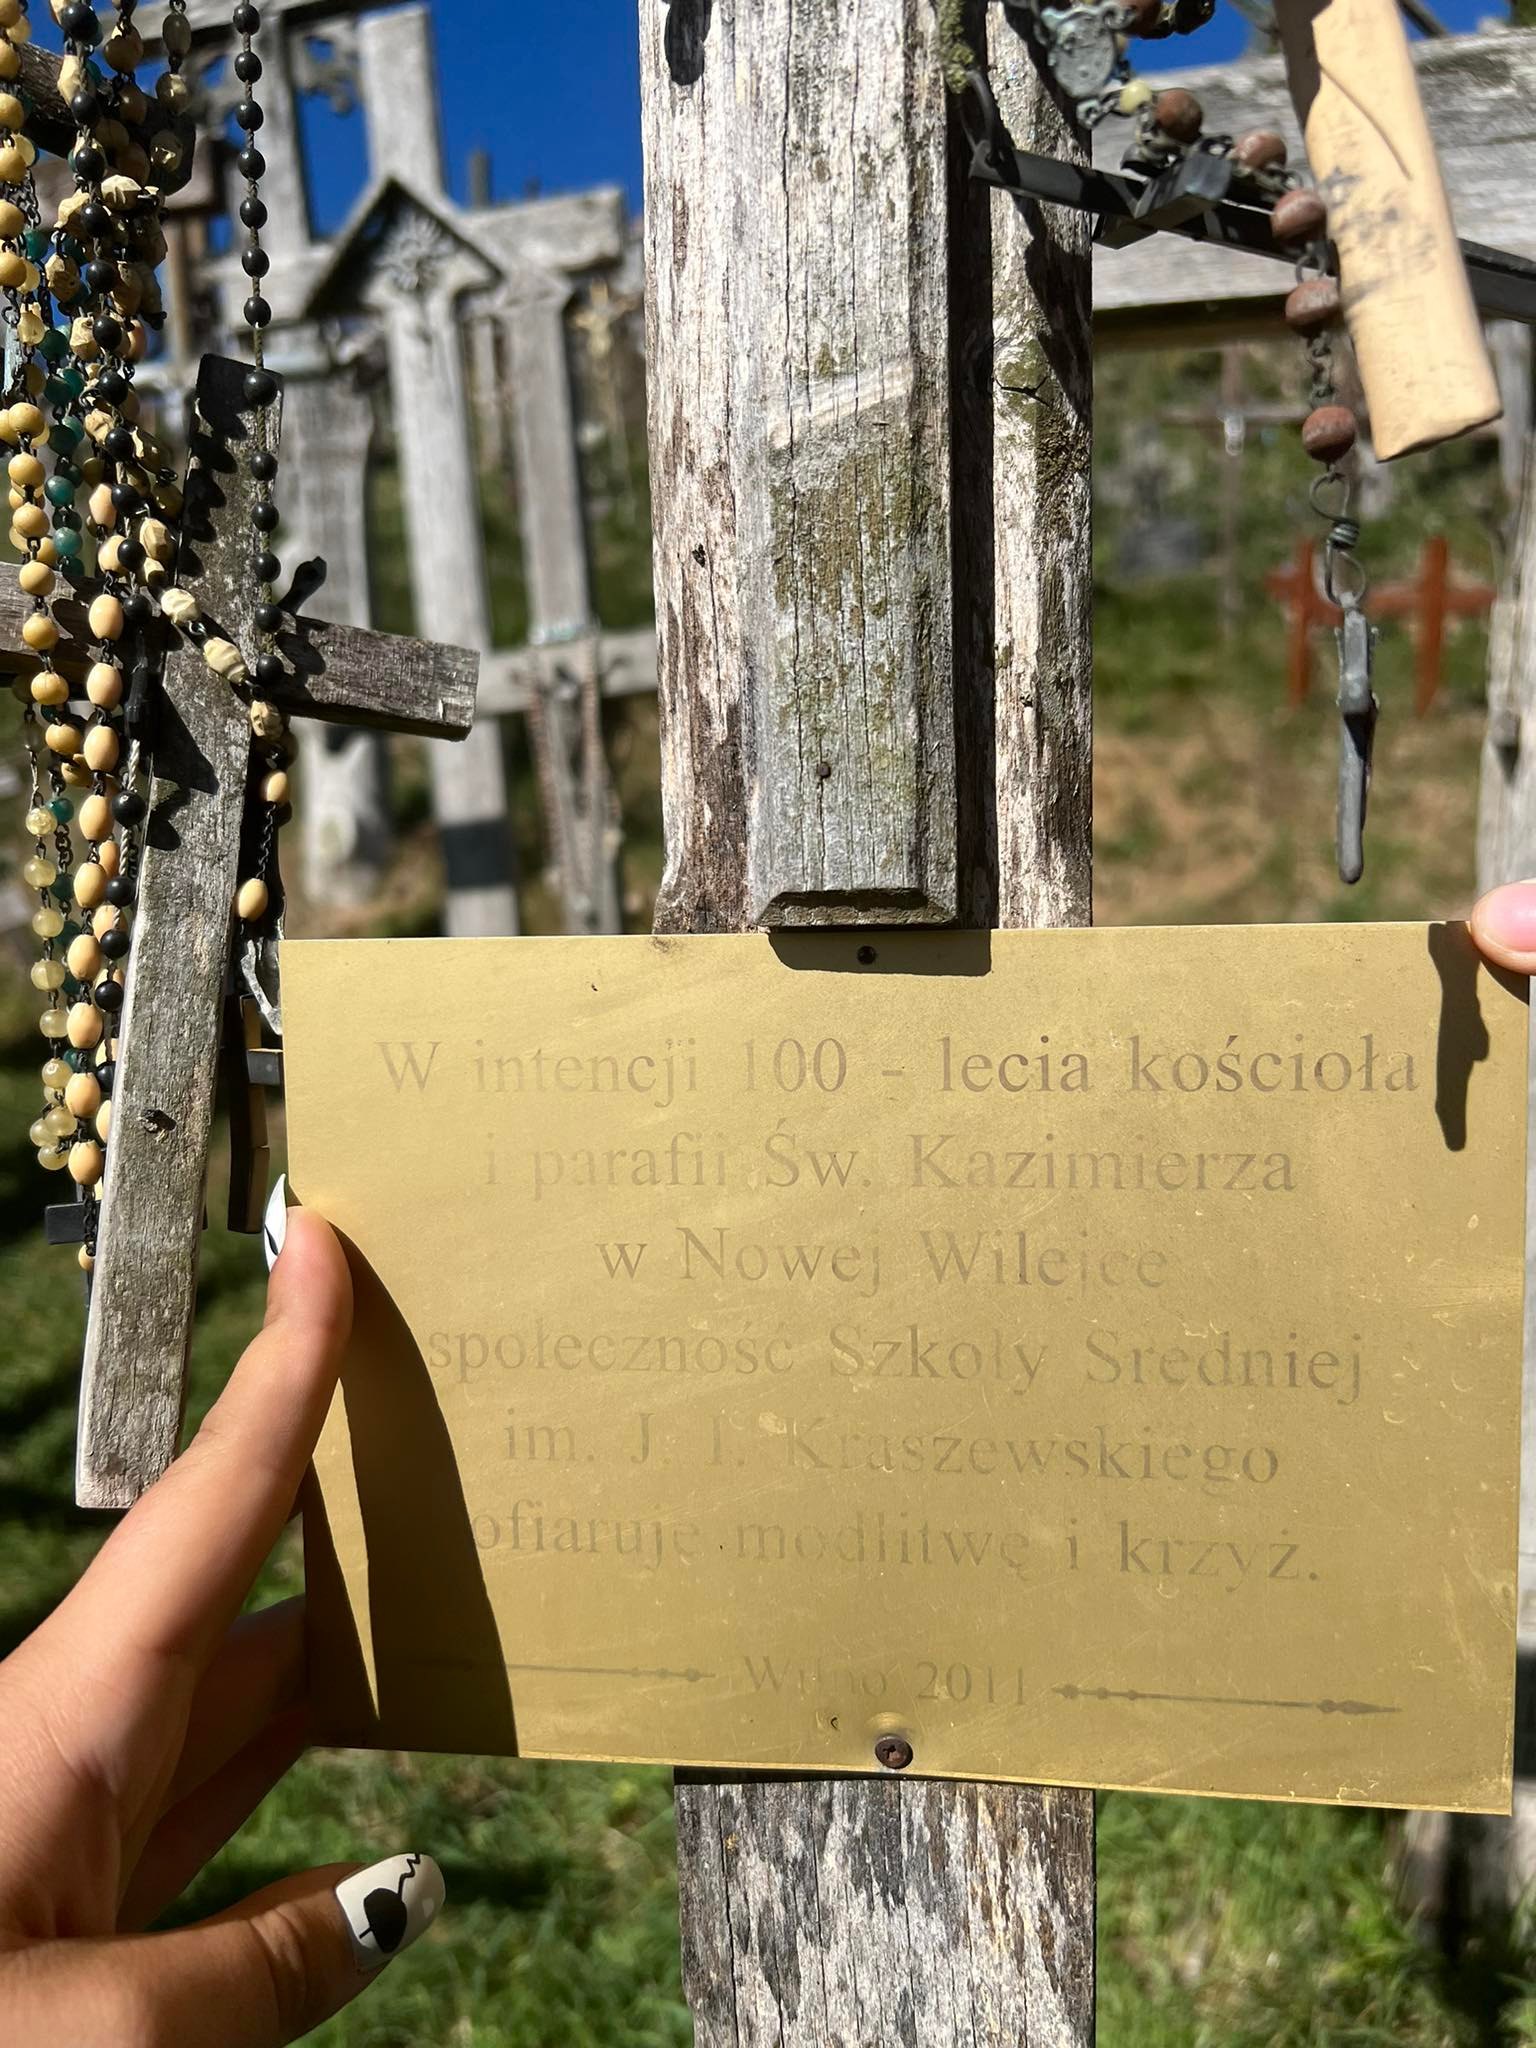 W intencji 100 - lecia kościoła
i parafii Św. Kazimierza
w Nowej Wilejce
społeczność Szkoły Sredniej
im. J. I. Kraszewskiego
ofiaruje modlitwę i krzyż.
Wilno 2011